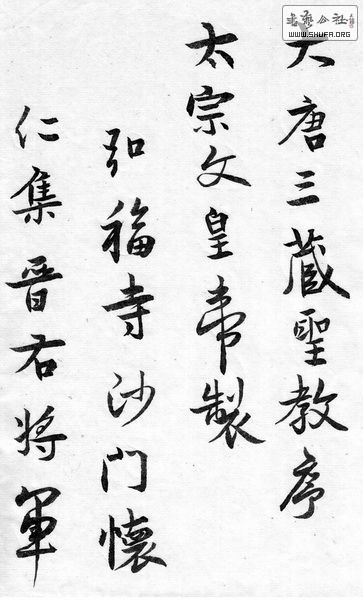 大唐三藏聖教序
太宗文皇帝製
弘福寺沙門懷
仁集晉右將軍
書法公社
WWW.SHUFA.ORG